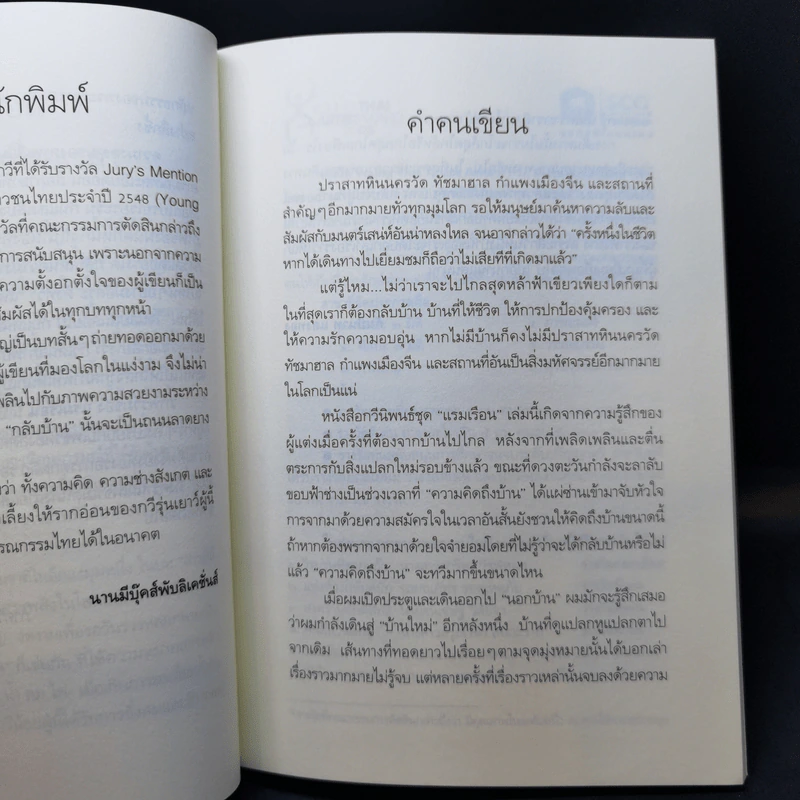 นักพิมพ์
กวีที่ได้รับรางวัล Jury's Mention
าวชนไทยประจำปี 2548 (Young
วัลที่คณะกรรมการตัดสินกล่าวถึง
การสนับสนุน เพราะนอกจากความ
ความตั้งอกตั้งใจของผู้เขียนก็เป็น
สัมผัสได้ในทุกบททุกหน้า
ญ่เป็นบทสั้นๆ ถ่ายทอดออกมาด้วย
ผู้เขียนที่มองโลกในแง่งาม จึงไม่น่า
พลินไปกับภาพความสวยงามระหว่าง
"กลับบ้าน" นั้นจะเป็นถนนลาดยาง
ว่า ทั้งความคิด ความช่างสังเกต และ
เลี้ยงให้รากอ่อนของกวีรุ่นเยาว์ผู้นี้
รณกรรมไทยได้ในอนาคต
นานมีบุ๊คส์พับลิเคชั่นส์
คำคนเขียน
ปราสาทหินนครวัด ทัชมาฮาล กำแพงเมืองจีน และสถานที่
สำคัญๆ อีกมากมายทั่วทุกมุมโลก รอให้มนุษย์มาค้นหาความลับและ
สัมผัสกับมนตร์เสน่ห์อันน่าหลงใหล จนอาจกล่าวได้ว่า "ครั้งหนึ่งในชีวิต
หากได้เดินทางไปเยี่ยมชมก็ถือว่าไม่เสียทีที่เกิดมาแล้ว"
แต่รู้ไหม...ไม่ว่าเราจะไปไกลสุดหล้าฟ้าเขียวเพียงใดก็ตาม
ในที่สุดเราก็ต้องกลับบ้าน บ้านที่ให้ชีวิต ให้การปกป้องคุ้มครอง และ
ให้ความรักความอบอุ่น หากไม่มีบ้านก็คงไม่มีปราสาทหินนครวัด
ทัชมาฮาล กำแพงเมืองจีน และสถานที่อันเป็นสิ่งมหัศจรรย์อีกมากมาย
ในโลกเป็นแน่
หนังสือกวีนิพนธ์ชุด "แรมเรือน" เล่มนี้เกิดจากความรู้สึกของ
ผู้แต่งเมื่อครั้งที่ต้องจากบ้านไปไกล หลังจากที่เพลิดเพลินและตื่น
ตระการกับสิ่งแปลกใหม่รอบข้างแล้ว ขณะที่ดวงตะวันกำลังจะลาลับ
ขอบฟ้าช่างเป็นช่วงเวลาที่ "ความคิดถึงบ้าน" ได้แผ่ซ่านเข้ามาจับหัวใจ
การจากมาด้วยความสมัครใจในเวลาอันสั้นยังชวนให้คิดถึงบ้านขนาดนี้
ถ้าหากต้องพรากจากมาด้วยใจจำยอมโดยที่ไม่รู้ว่าจะได้กลับบ้านหรือไม่
แล้ว "ความคิดถึงบ้าน" จะทวีมากขึ้นขนาดไหน
เมื่อผมเปิดประตูและเดินออกไป "นอกบ้าน" ผมมักจะรู้สึกเสมอ
ว่าผมกำลังเดินสู่ "บ้านใหม่" อีกหลังหนึ่ง บ้านที่ดูแปลกหูแปลกตาไป
จากเดิม เส้นทางที่ทอดยาวไปเรื่อยๆ ตามจุดมุ่งหมายนั้นได้บอกเล่า
เรื่องราวมากมายไม่รู้จบ แต่หลายครั้งที่เรื่องราวเหล่านั้นจบลงด้วยความ